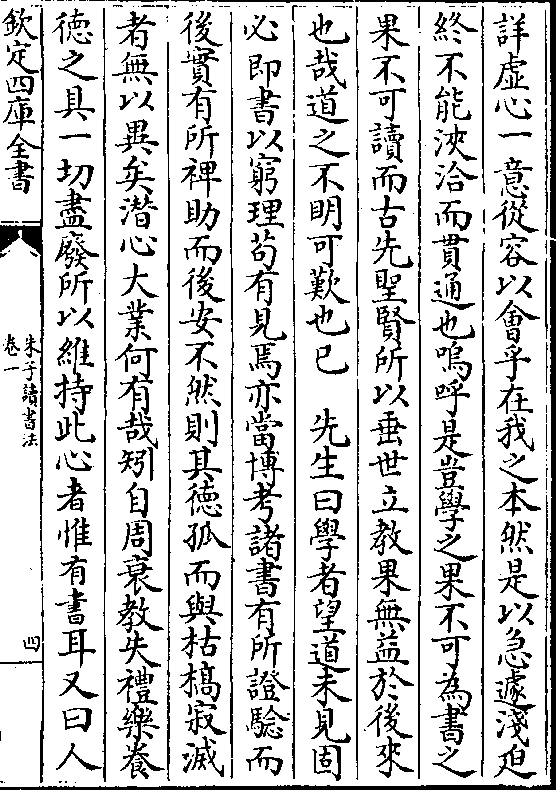 詳虛心一意從容以㑹乎在我之本然是以急遽淺廹
終不能浹洽而貫通也嗚呼是豈學之果不可為書之
果不可讀而古先聖賢所以垂世立教果無益於後來
也哉道之不明可歎也已　先生曰學者望道未見固
必即書以窮理苟有見焉亦當博考諸書有所證驗而
後實有所裨助而後安不然則其德孤而與枯槁寂滅
者無以異矣潜心大業何有哉矧自周衰教失禮樂養
徳之具一切盡廢所以維持此心者惟有書耳又曰人
欽定四庫全書
朱子讀書法
卷一
四